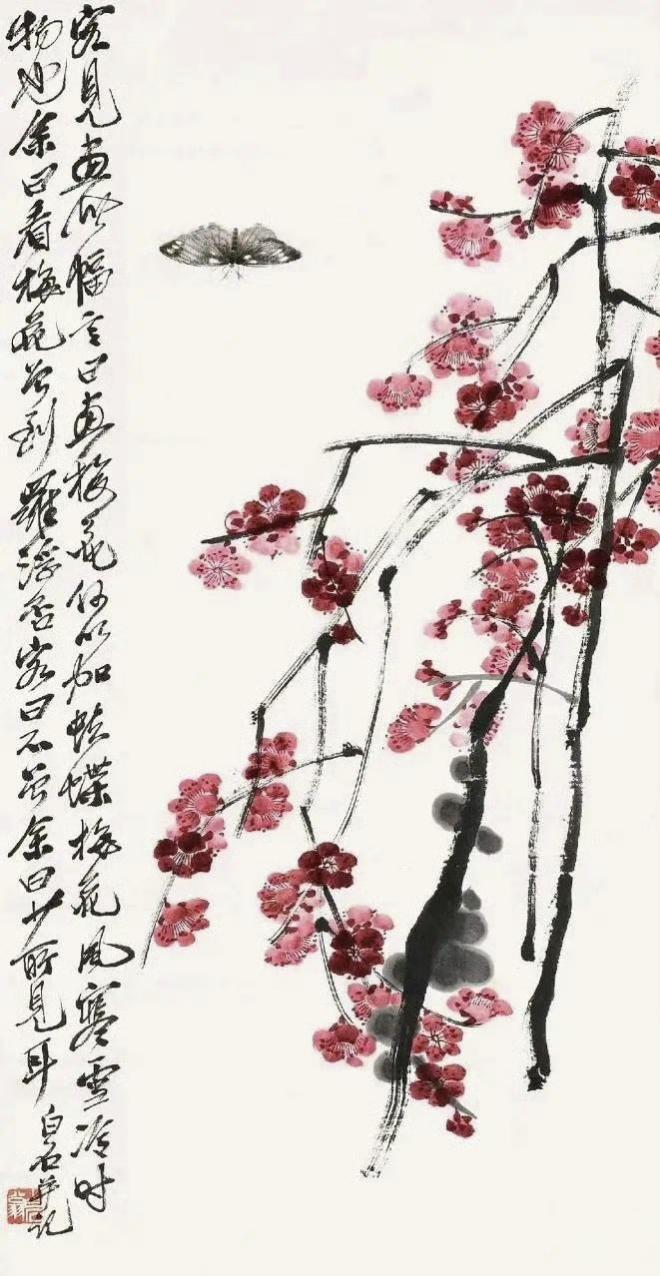 客見畫此幅言曰畫梅花何以加蛺蝶梅花風寒雪冷時
物也余曰看梅花曾到羅浮否客曰不曾余曰少所見耳
白石并記